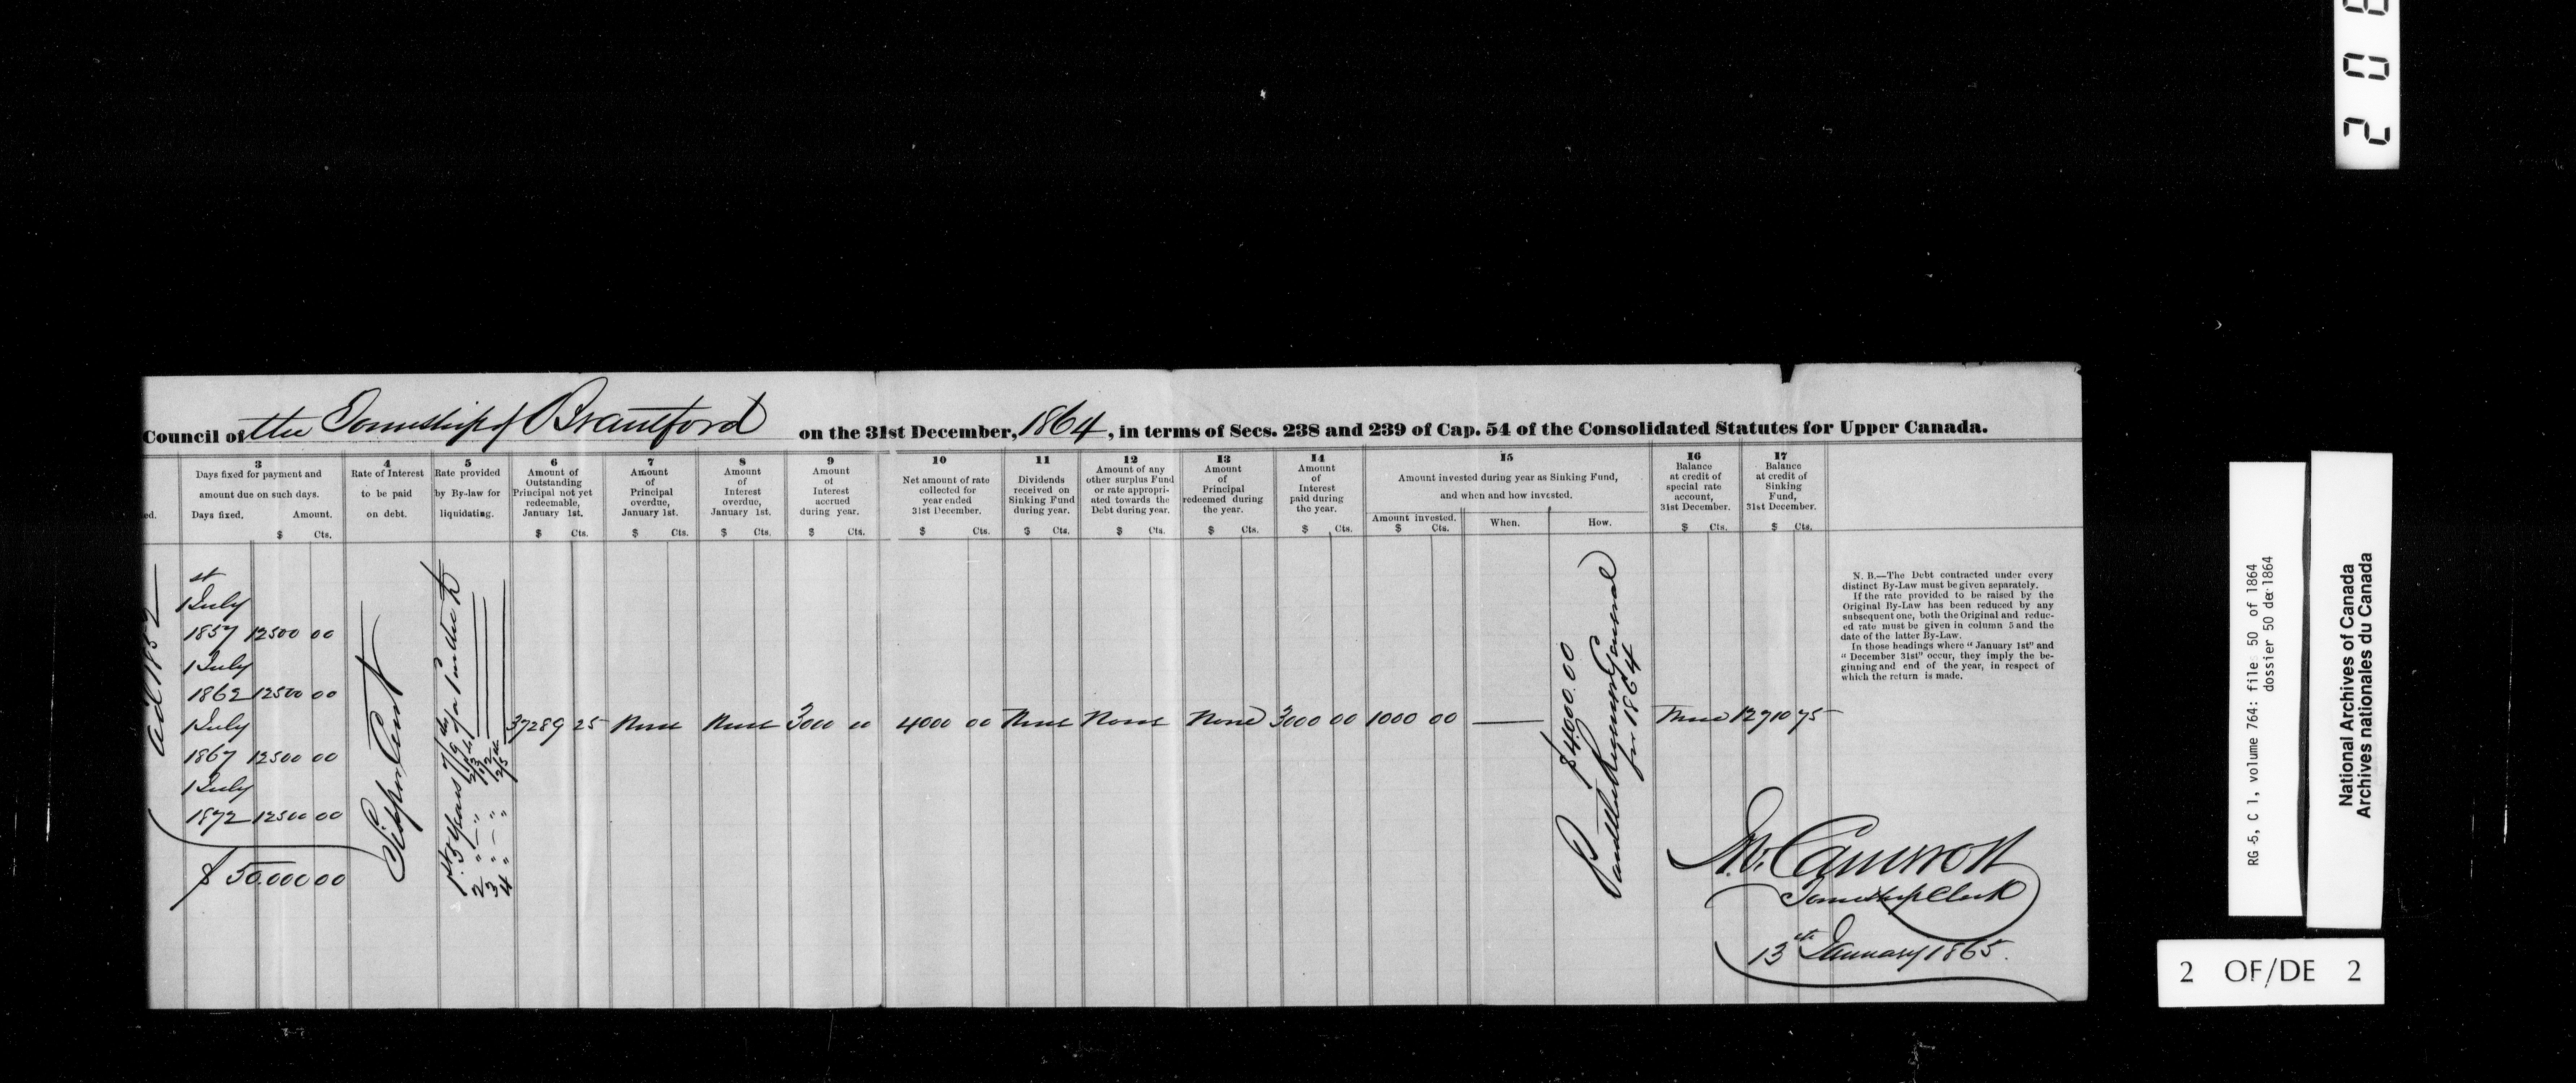 Council of the Township of Brantford on the 31st December, 1864, in terms of Secs. 238 and 239 of Cap. 54 of the Consolidated Statutes for Upper Canada.
ed.
3
Days fixed for payment and
amount due on such days.
Days fixed. Amount.
$ Cts.
4
Rate of Interest
to be paid
on debt.
5
Rate provided
by By-law for
liquidating.
6
Amount of
Outstanding
Principal not yet
redeemable,
January 1st.
$ Cts.
7
Amount
of
Principal
overdue,
January 1st.
$ Cts.
8
Amount
of
Interest
overdue,
January 1st.
$ Cts.
9
Amount
of
Interest
accrued
during year.
$ Cts.
10
Net amount of rate
collected for
year ended
31st December.
$ Cts.
11
Dividends
received on
Sinking Fund
during year.
$ Cts.
12
Amount of any
other surplus Fund
or rate appropri-
ated towards the
Debt during year.
$ Cts.
13
Amount
of
Principal
redeemed during
the year.
$ Cts.
14
Amount
of
Interest
paid during
the year.
$ Cts.
15
Amount invested during year as Sinking Fund,
and when and how invested.
Amount invested.
$ Cts.
When.
How.
16
Balance
at credit of
special rate
account,
31st December.
$ Cts.
17
Balance
at credit of
Sinking
Fund,
31st December.
$ Cts.
st
1 July
1857 12500 00
1 July
1862 12500 00
1 July
1867 12500 00
1 July
1872 12500 00
$ 50.000 00
Six per Cent
1st 5 years
2 " "
3 " "
4 " "
37289 25 None None 3000 00 4000 00 None None None 3000 00 1000 00 — None 12710 75
$4000.00
Paid the Receiver General
for 1864
N. B.—The Debt contracted under every
distinct By-Law must be given separately.
If the rate provided to be raised by the
Original By-Law has been reduced by any
subsequent one, both the Original and reduc-
ed rate must be given in column 5 and the
date of the latter By-Law.
In those headings where "January 1st" and
"December 31st" occur, they imply the be-
ginning and end of the year, in respect of
which the return is made.
Cameron
Township Clerk
13th January 1865.
RG 5, C 1, volume 764: file 50 of 1864
dossier 50 de 1864
National Archives of Canada
Archives nationales du Canada
2 OF/DE 2